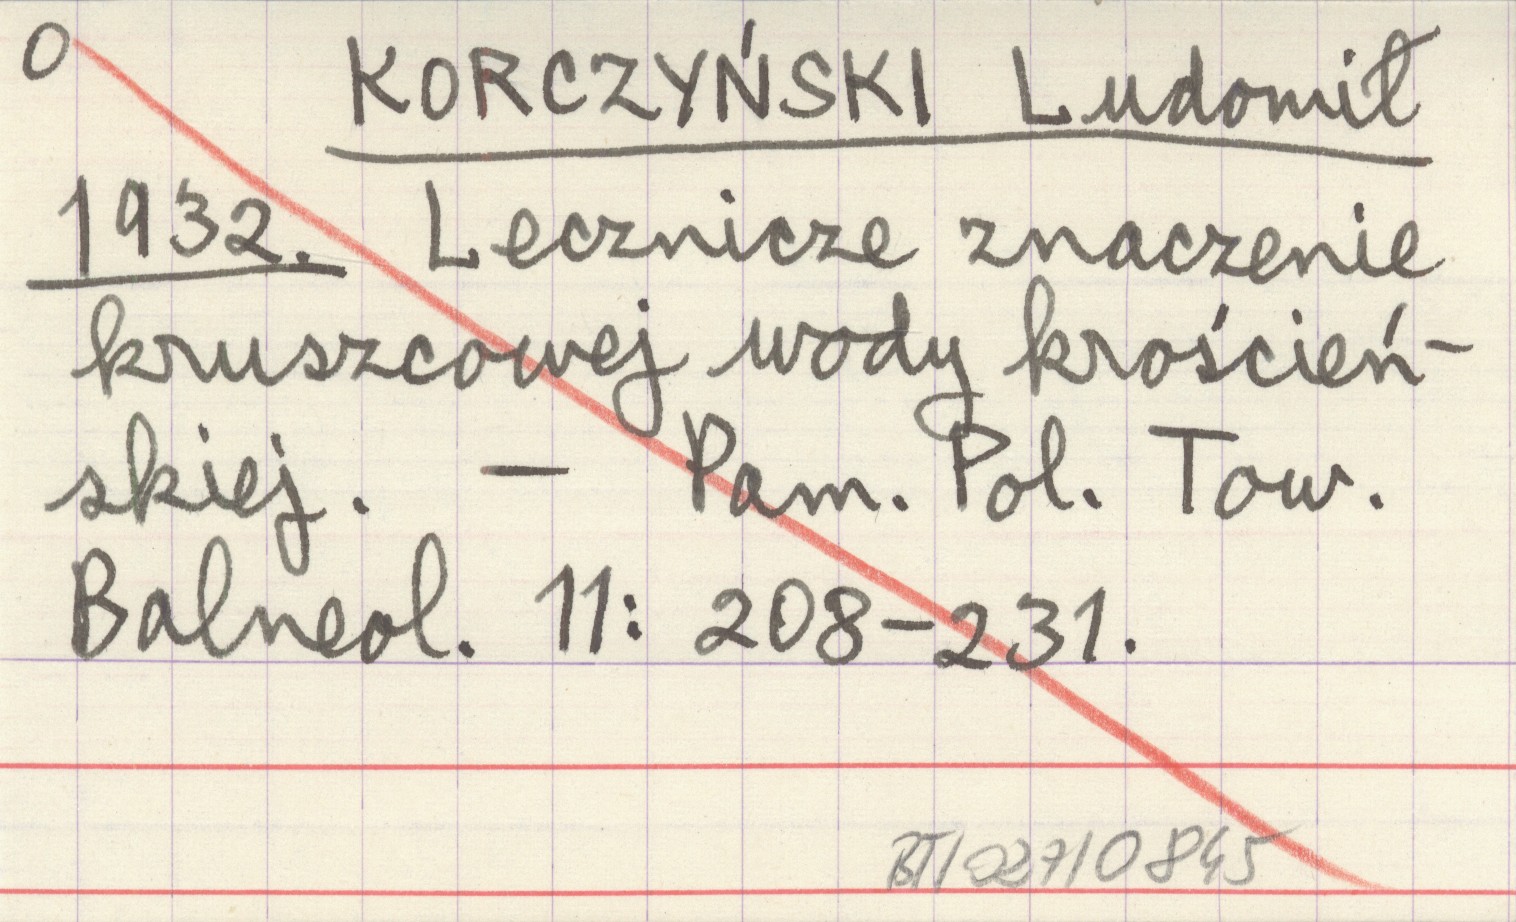 O KORCZYŃSKI Ludomił
1932. Lecznicze znaczenie
kruszcowej wody kroścień-
skiej. — Pam. Pol. Tow.
Balneol. 11: 208-231.
BT/027/0845